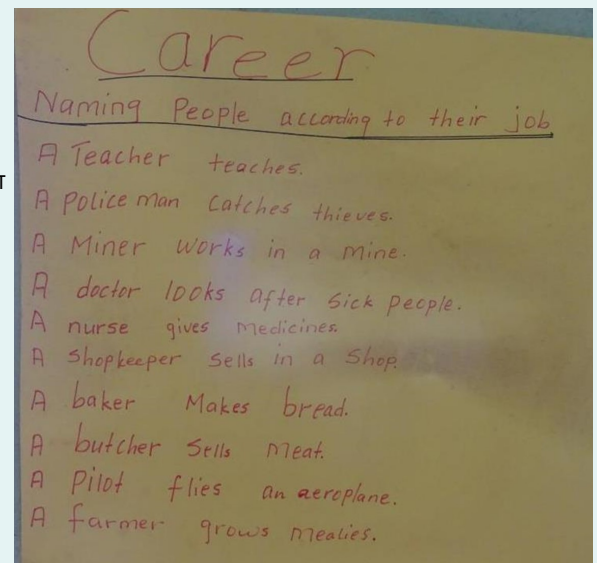 Career
Naming People according to their job
A Teacher teaches.
A Police man catches thieves.
A Miner works in a mine.
A doctor looks after sick people.
A nurse gives medicines.
A shopkeeper sells in a shop.
A baker Makes bread.
A butcher sells meat.
A Pilot flies an aeroplane.
A farmer grows mealies.